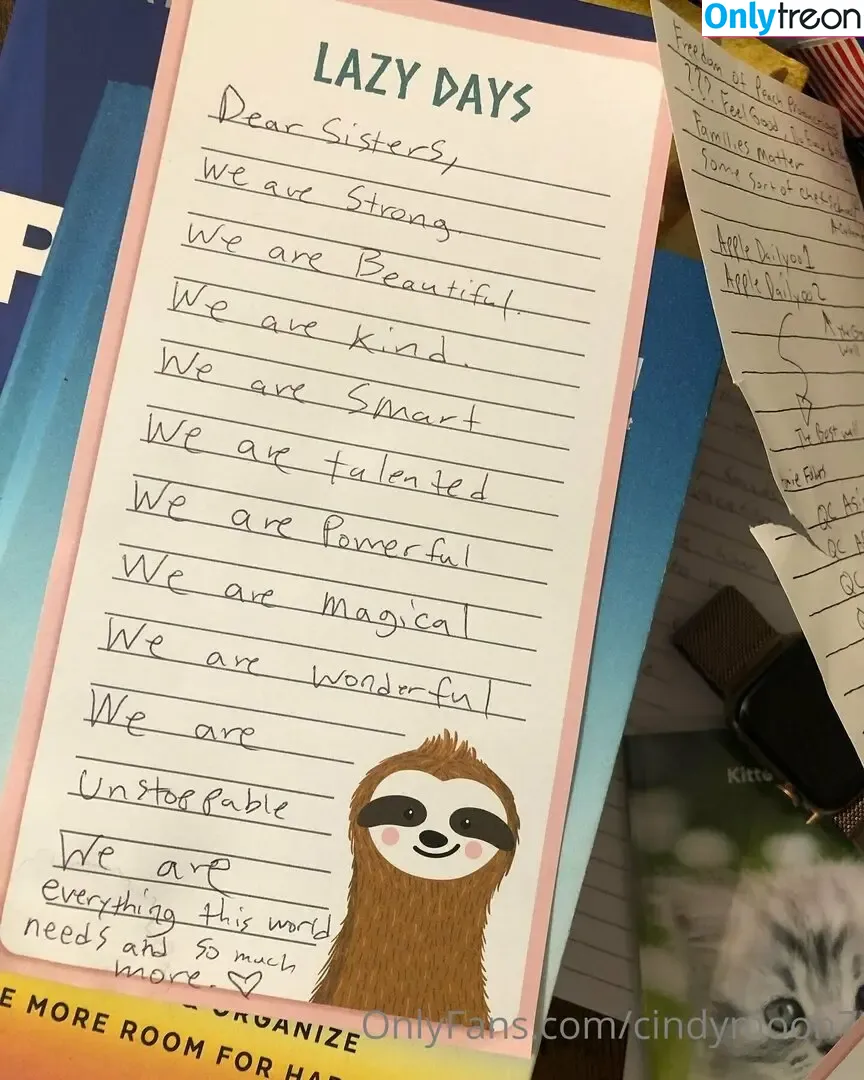 Onlytreon
LAZY DAYS
Dear Sisters,
We are Strong.
We are Beautiful.
We are kind.
We are Smart
We are talented
We are Powerful
We are magical
We are wonderful
We are
Unstoppable
We are
everything this world
needs and so much
more. ♡
Freedom of Peach
??? Feel Good, Do
Families Matter
Some Sort of
Apple Daily001
Apple Daily002
The Best
QC
QC
QC
Kitt
P
& ORGANIZE
E MORE ROOM FOR HA
OnlyFans.com/cindymoon7